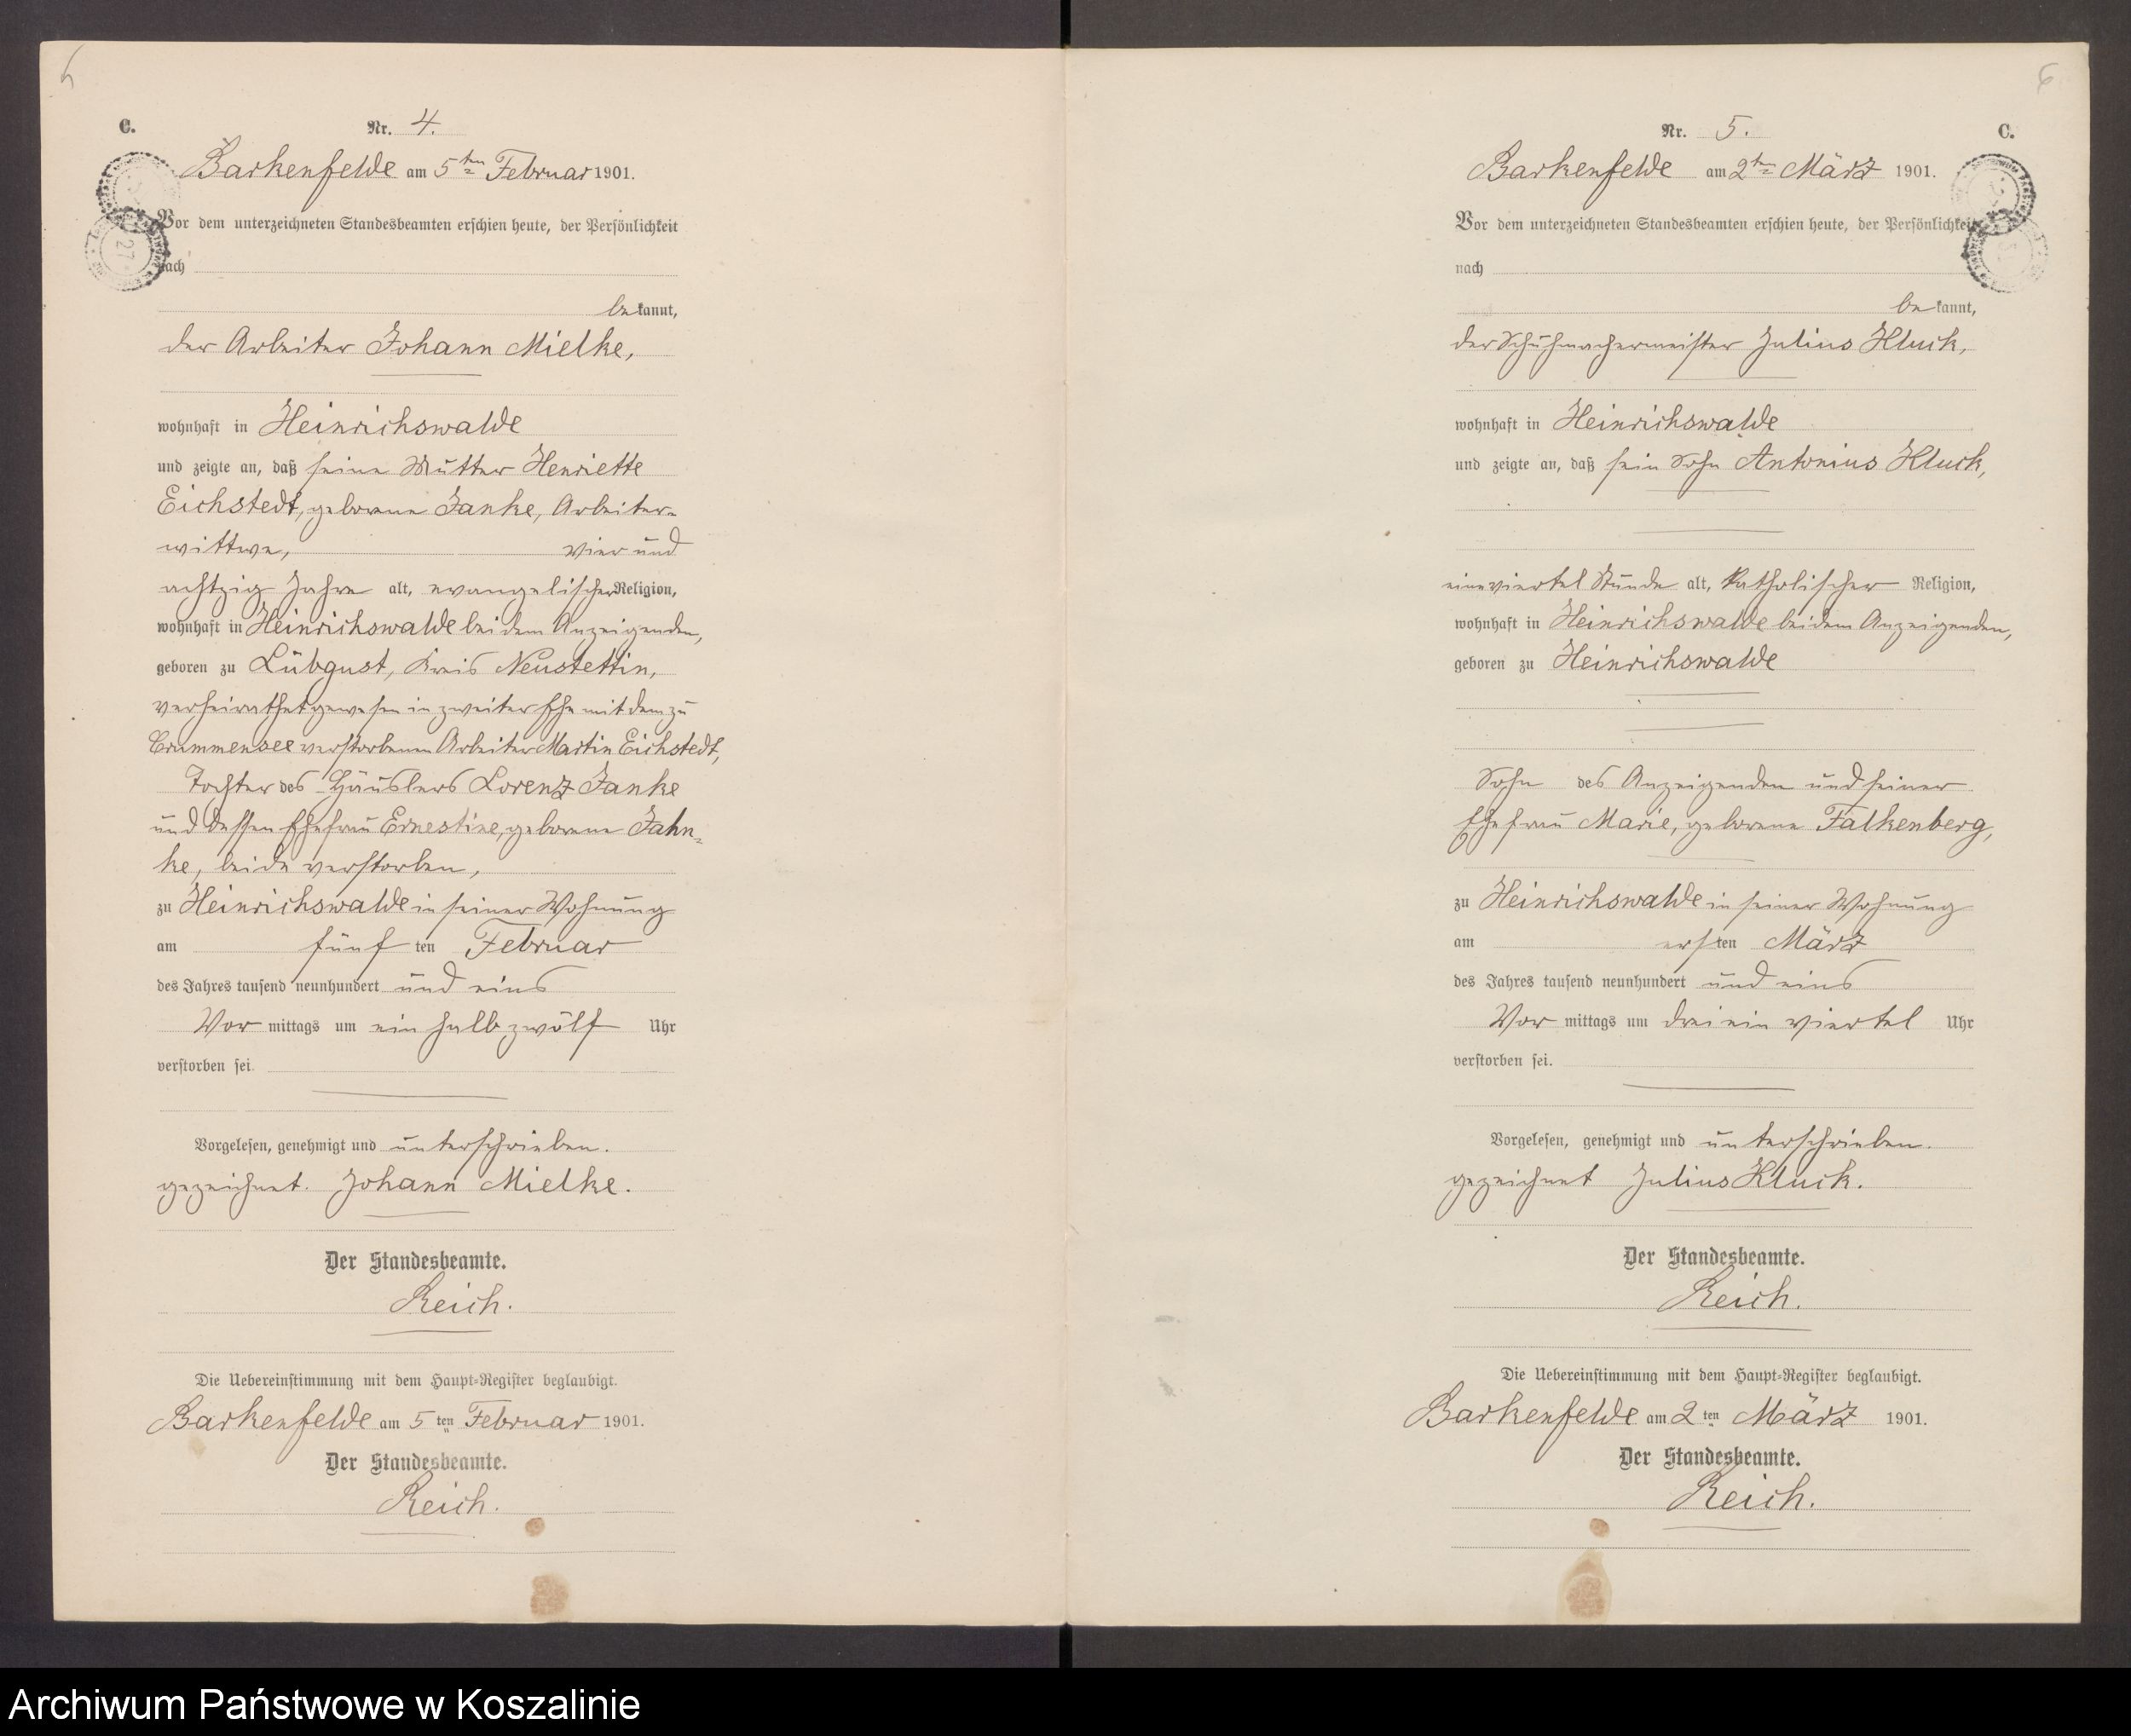 5
C.
Nr. 4.
Barkenfelde am 5ten Februar 1901.
Vor dem unterzeichneten Standesbeamten erschien heute, der Persönlichkeit
nach
bekannt,
der Arbeiter Johann Mielke,
wohnhaft in Heinrichswalde
und zeigte an, daß seine Mutter Henriette
Eichstedt, geborene Janke, Arbeiter-
wittwe, vier und
achtzig Jahre alt, evangelischer Religion,
wohnhaft in Heinrichswalde bei dem Anzeigenden,
geboren zu Lübgust, Kreis Neustettin,
verheirathet gewesen in zweiter Ehe mit dem zu
Crummensee verstorbenen Arbeiter Martin Eichstedt,
Tochter des Häuslers Lorenz Janke
und dessen Ehefrau Ernestine, geborene Jahn-
ke, beide verstorben,
zu Heinrichswalde in seiner Wohnung
am fünf ten Februar
des Jahres tausend neunhundert und eins
Vor mittags um ein halb zwölf Uhr
verstorben sei.
Vorgelesen, genehmigt und unterschrieben.
gezeichnet. Johann Mielke.
Der Standesbeamte.
Reich.
Die Uebereinstimmung mit dem Haupt-Register beglaubigt.
Barkenfelde am 5ten Februar 1901.
Der Standesbeamte.
Reich.
6
Nr. 5.
C.
Barkenfelde am 2ten März 1901.
Vor dem unterzeichneten Standesbeamten erschien heute, der Persönlichkeit
nach
bekannt,
der Schuhmachermeister Julius Kluck,
wohnhaft in Heinrichswalde
und zeigte an, daß sein Sohn Antonius Kluck,
eine viertel Stunde alt, katholischer Religion,
wohnhaft in Heinrichswalde bei dem Anzeigenden,
geboren zu Heinrichswalde
Sohn des Anzeigenden und seiner
Ehefrau Marie, geborene Falkenberg,
zu Heinrichswalde in seiner Wohnung
am ersten März
des Jahres tausend neunhundert und eins
Vor mittags um drei ein viertel Uhr
verstorben sei.
Vorgelesen, genehmigt und unterschrieben.
gezeichnet Julius Kluck.
Der Standesbeamte.
Reich.
Die Uebereinstimmung mit dem Haupt-Register beglaubigt.
Barkenfelde am 2ten März 1901.
Der Standesbeamte.
Reich.
Archiwum Państwowe w Koszalinie